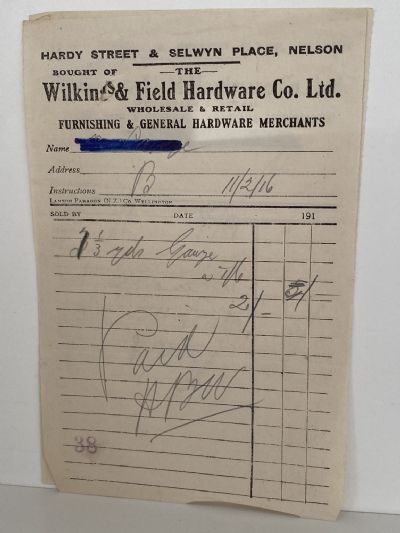 HARDY STREET & SELWYN PLACE, NELSON
BOUGHT OF —THE—
Wilkins & Field Hardware Co. Ltd.
WHOLESALE & RETAIL
FURNISHING & GENERAL HARDWARE MERCHANTS
Name
Address
Instructions B 11/2/16
LAMSON PARAGON (N.Z.) CO. WELLINGTON
SOLD BY DATE 191
1 1/3 yds Gauze
2/-
Paid
38